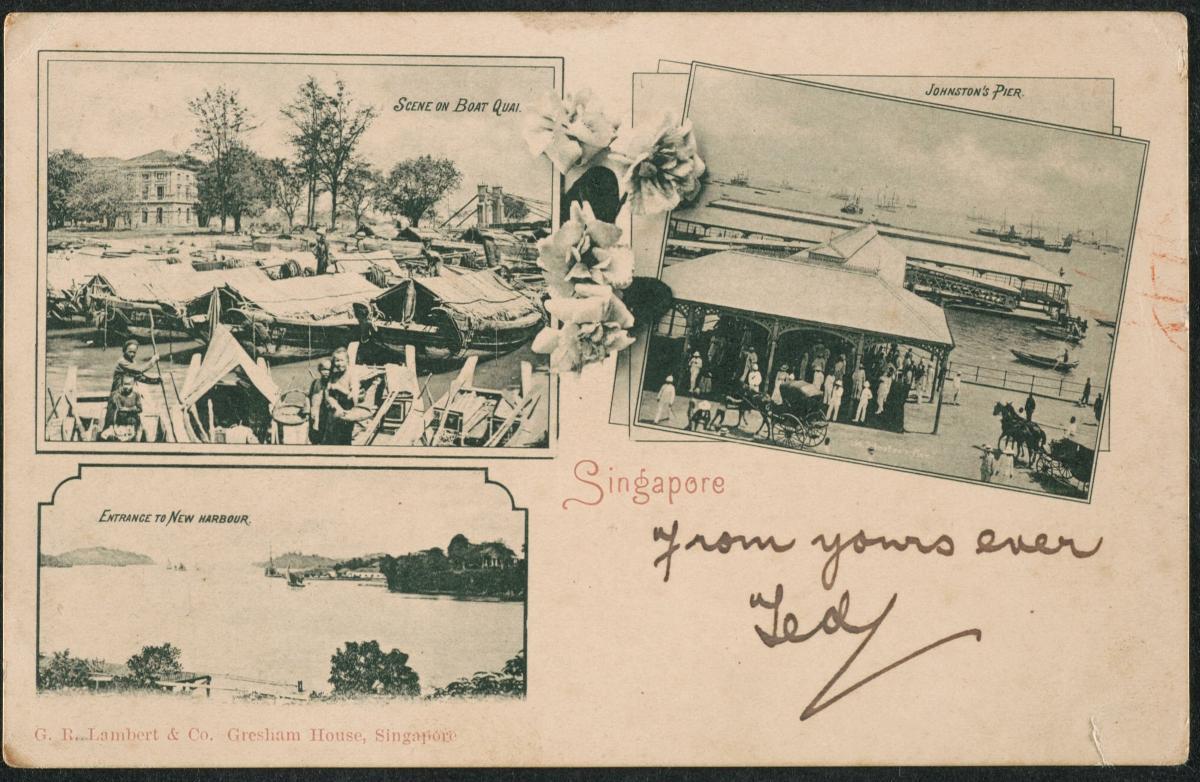 SCENE ON BOAT QUAI.
JOHNSTON'S PIER.
ENTRANCE TO NEW HARBOUR.
Singapore
From yours ever
Ted
G. R. Lambert & Co. Gresham House, Singapore